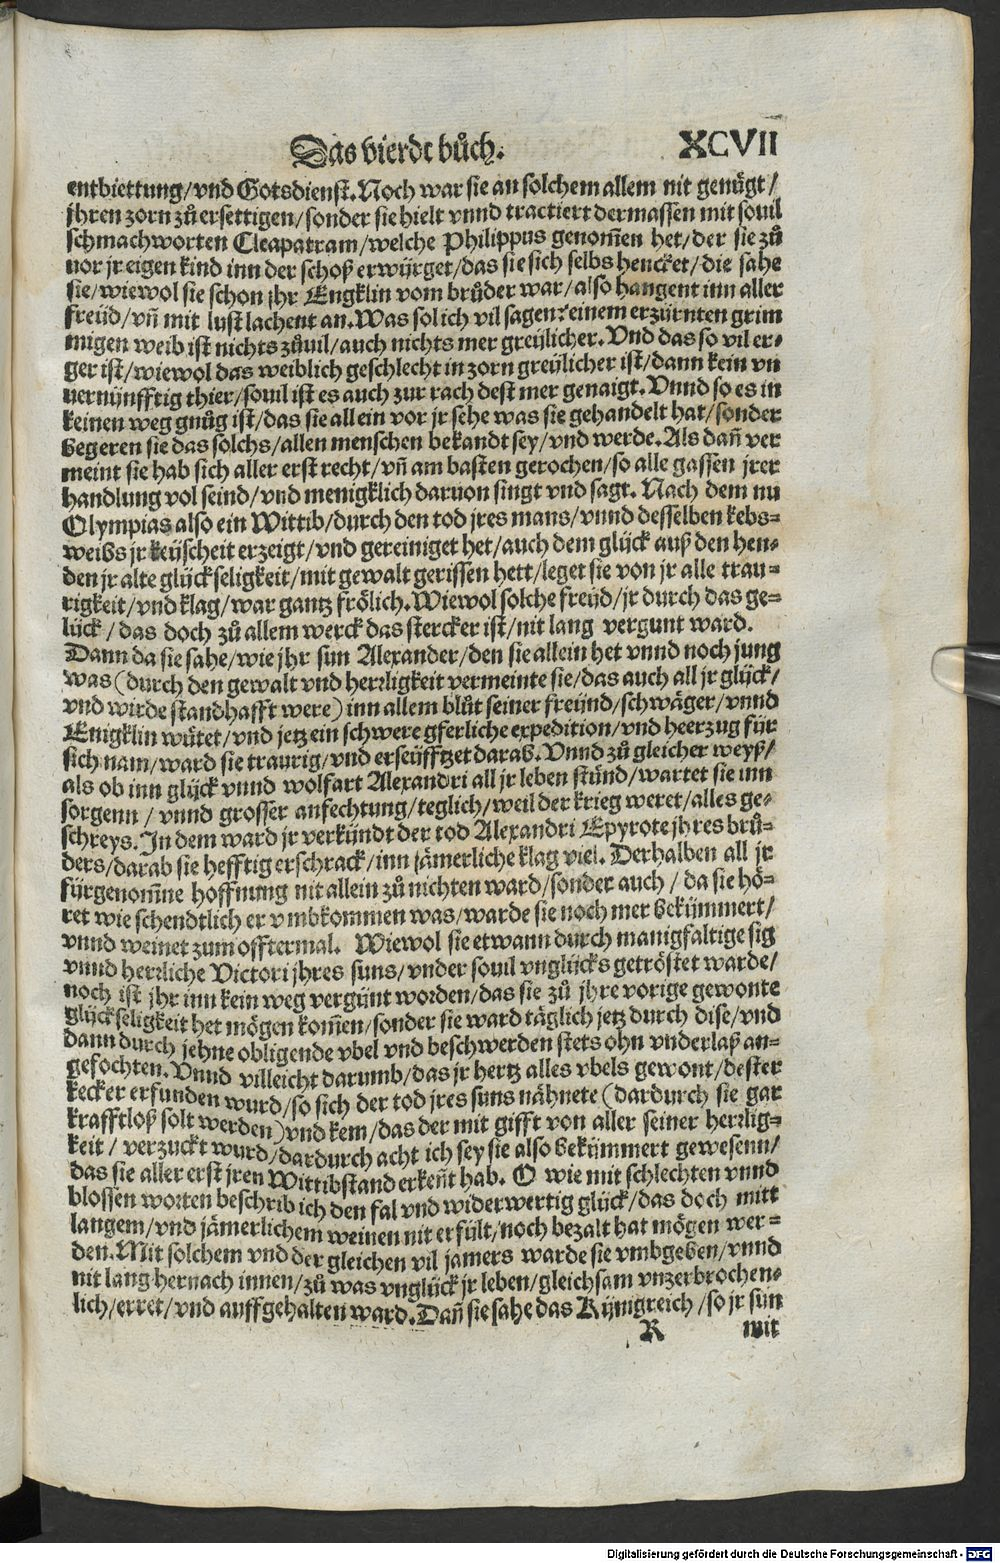 Das vierdt bůch. XCVII
entbiettung/vnd Gotsdienst. Noch war sie an solchem allem nit genügt/
jhren zorn zů ersettigen/sonder sie hielt vnnd tractiert dermassen mit souil
schmachworten Cleapatram/welche Philippus genom̃en het/der sie zů
uor jr eigen kind inn der schoß erwürget/das sie sich selbs hencket/die sahe
sie/wiewol sie schon jhr Engklin vom brůder war/also hangent inn aller
freüd/vñ mit lust lachent an. Was sol ich vil sagen? einem erzürnten grim
migen weib ist nichts zůuil/auch nichts mer greüllicher. Vnd das so vil er⸗
ger ist/wiewol das weiblich geschlecht in zorn greülicher ist/dann kein vn
uernünfftig thier/souil ist es auch zur rach dest mer genaigt. Vnnd so es in
keinen weg gnůg ist/das sie allein vor jr sehe was sie gehandelt hat/sonder
begeren sie das solchs/allen menschen bekandt sey/vnd werde. Als dañ ver
meint sie hab sich aller erst recht/vñ am basten gerochen/so alle gassen jrer
handlung vol seind/vnd menigklich daruon singt vnd sagt. Nach dem nu
Olympias also ein Wittib/durch den tod jres mans/vnnd desselben kebs⸗
weibs jr keüscheit erzeigt/vnd gereiniget het/auch dem glück auß den hen⸗
den jr alte glückseligkeit/mit gewalt gerissen hett/leget sie von jr alle trau⸗
rigkeit/vnd klag/war gantz frölich. Wiewol solche freüd/jr durch das ge⸗
lück/das doch zů allem werck das stercker ist/nit lang vergunt ward.
Dann da sie sahe/wie jhr sun Alexander/den sie allein het vnnd noch jung
was (durch den gewalt vnd herrligkeit vermeinte sie/das auch all jr glück/
vnd wirde standhafft were) inn allem blůt seiner freünd/schwäger/vnnd
Enigklin wůtet/vnd jetz ein schwere gferliche expedition/vnd heerzug für
sich nam/ward sie traurig/vnd erseüfftzet darab. Vnnd zů gleicher weyß/
als ob inn glück vnnd wolfart Alexandri all jr leben stünd/wartet sie inn
sorgenn/vnnd grosser anfechtung/teglich/weil der krieg weret/alles ge⸗
schreys. In dem ward jr verkündt der tod Alexandri Epyrote jhres brů⸗
ders/darab sie hefftig erschrack/inn jämerliche klag viel. Derhalben all jr
fürgenom̃ne hoffnung nit allein zů nichten ward/sonder auch/da sie hö⸗
ret wie schendtlich er vmbkommen was/warde sie noch mer bekümmert/
vnnd weinet zum offtermal. Wiewol sie etwann durch manigfaltige sig
vnnd herrliche Victori jhres suns/vnder souil vnglücks getröstet warde/
noch ist jhr inn kein weg vergünt worden/das sie zů jhre vorige gewonte
glückseligkeit het mögen kom̃en/sonder sie ward täglich jetz durch dise/vnd
dann durch jehne obligende vbel vnd beschwerden stets ohn vnderlaß an⸗
gefochten. Vnnd villeicht darumb/das jr hertz alles vbels gewont/dester
kecker erfunden wurd/so sich der tod jres suns nähnete (dardurch sie gar
krafftloß solt werden) vnd kem/das der mit gifft von aller seiner herrlig⸗
keit/verzuckt wurd/dardurch acht ich sey sie also bekümmert gewesenn/
das sie aller erst jren Wittibstand erkeñt hab. O wie mit schlechten vnnd
blossen worten beschrib ich den fal vnd widerwertig glück/das doch mitt
langem/vnd jämerlichem weinen nit erfült/noch bezalt hat mögen wer⸗
den. Mit solchem vnd der gleichen vil jamers warde sie vmbgeben/vnnd
nit lang hernach innen/zů was vnglück jr leben/gleichsam vnzerbrochen⸗
lich/erret/vnd auffgehalten ward. Dañ sie sahe das Künigreich/so jr sun
R mit
Digitalisierung gefördert durch die Deutsche Forschungsgemeinschaft - DFG